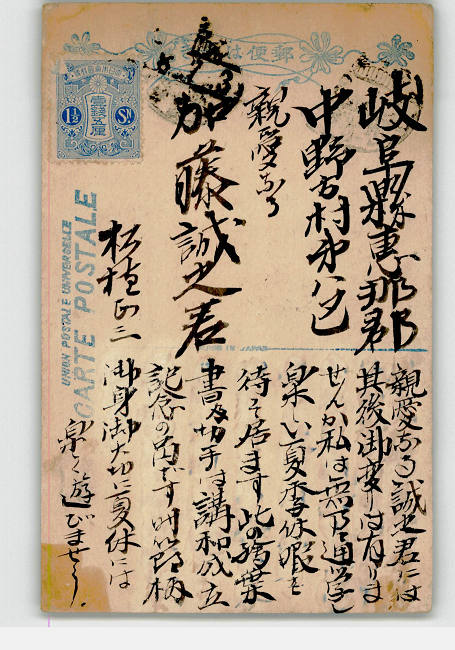 郵便は
壹錢五厘
1½ Sn
UNION POSTALE UNIVERSELLE
CARTE POSTALE
岐阜縣惠那郡
中野方村
親愛なる
加藤誠之君
松
正三
親愛なる誠之君には
其後御変りは有りま
せんか私は無事通学し
楽しい夏季休暇を
待て居ます此の繪葉
書及切手は講和成立
記念の
です時節柄
御身御大切に夏休には
楽く遊びませう